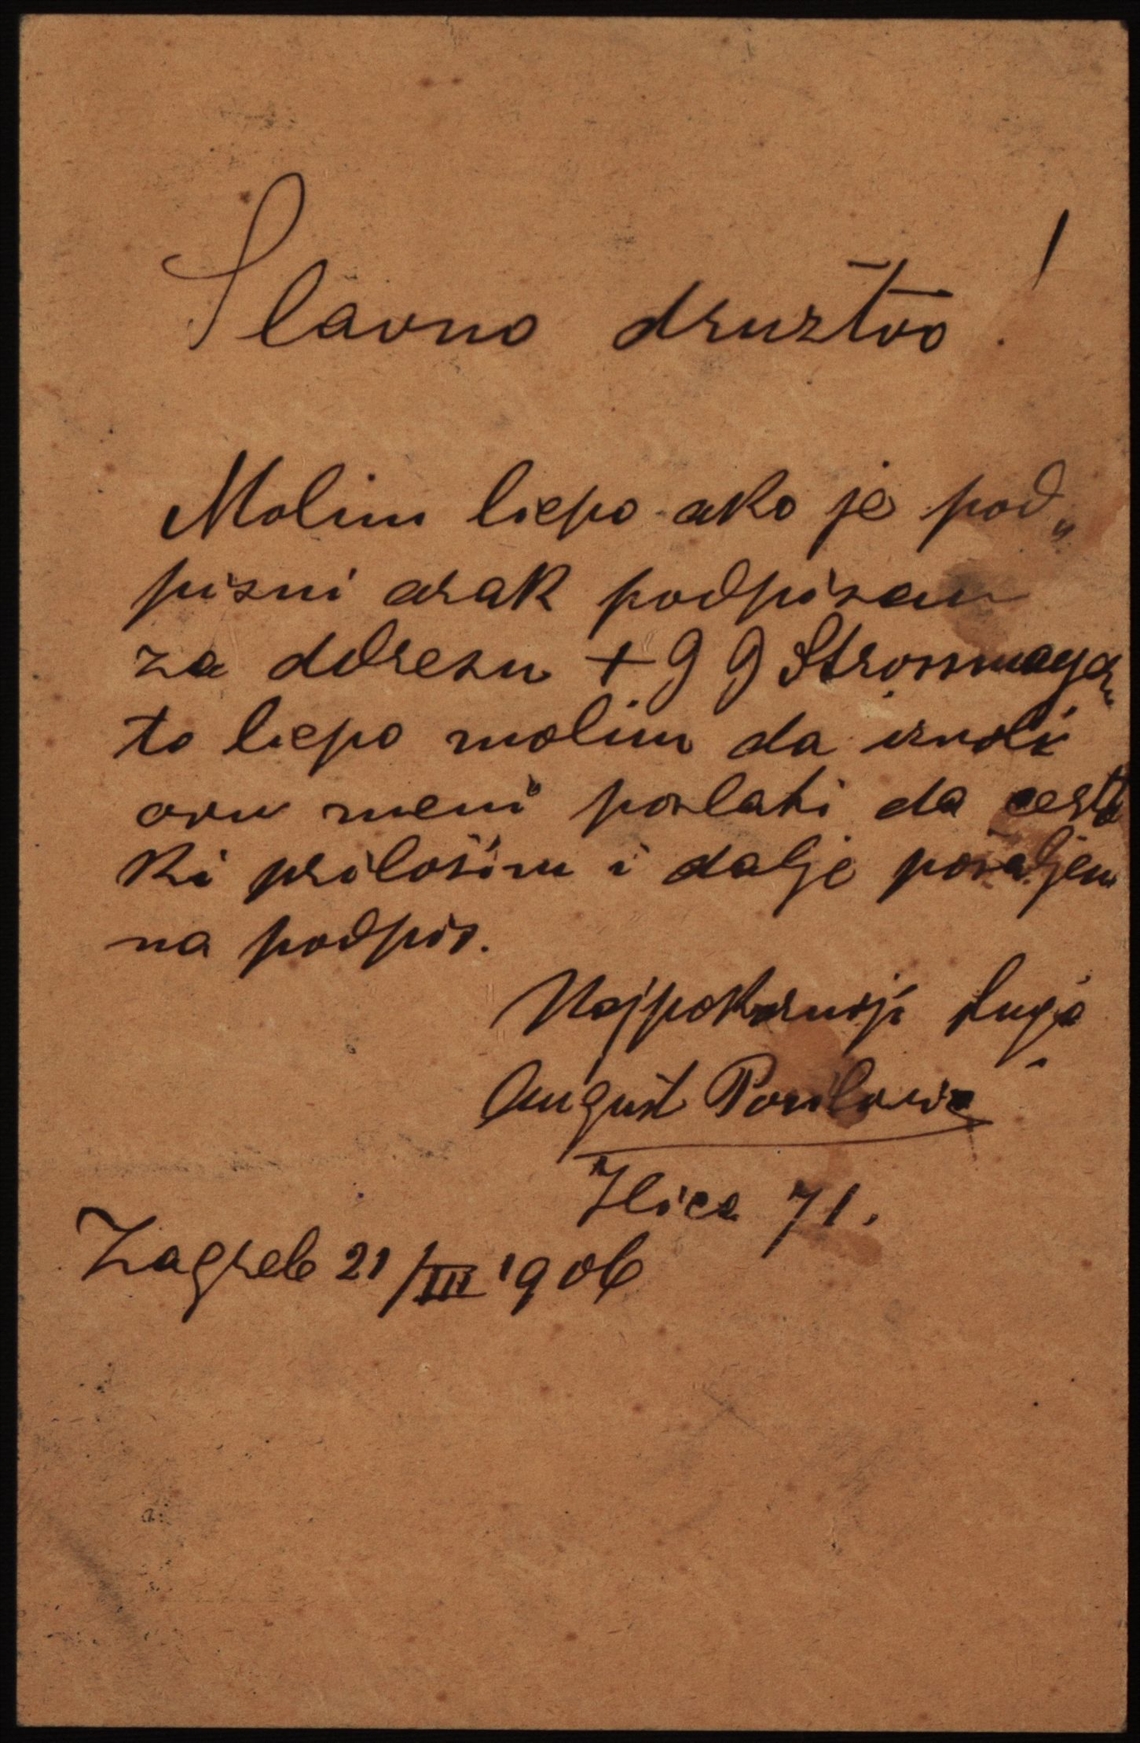 Slavno družtvo!
Molim liepo ako je pod„
pisni arak podpisan
za adresu + g g Strossmayer„
to liepo molim da izvoli
ovu meni poslati da čestit
ki priložim i dalje pošaljem
na podpis.
Najpokornoji sluga
August Posilović
Ilica 71.
Zagreb 21/III 1906